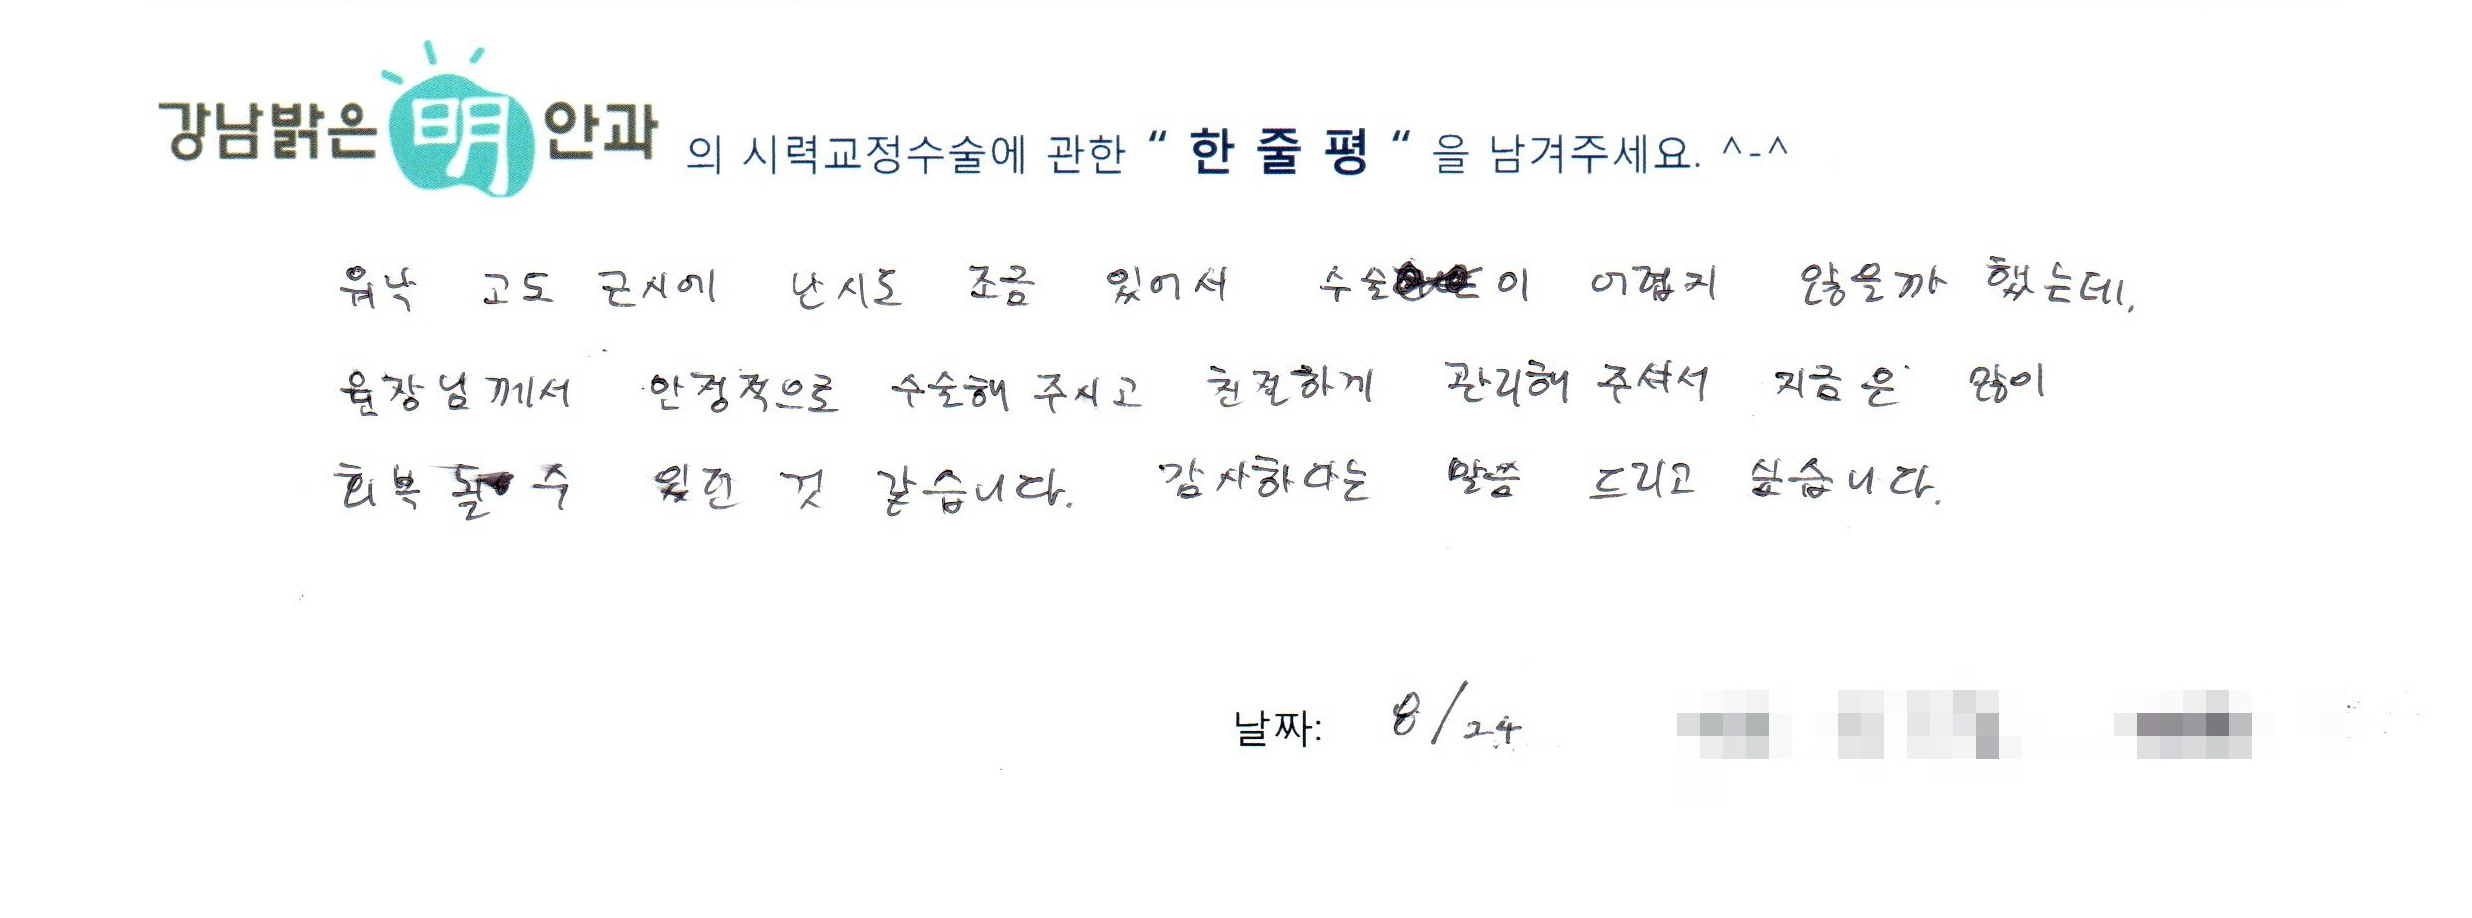 강남밝은 明 안과 의 시력교정수술에 관한 “ 한 줄 평 “ 을 남겨주세요. ^-^
워낙 고도 근시에 난시도 조금 있어서 수술이 어렵지 않을까 했는데,
원장님께서 안정적으로 수술해 주시고 친절하게 관리해 주셔서 지금은 많이
회복 될 수 있던 것 같습니다. 감사하다는 말씀 드리고 싶습니다.
날짜: 8/24